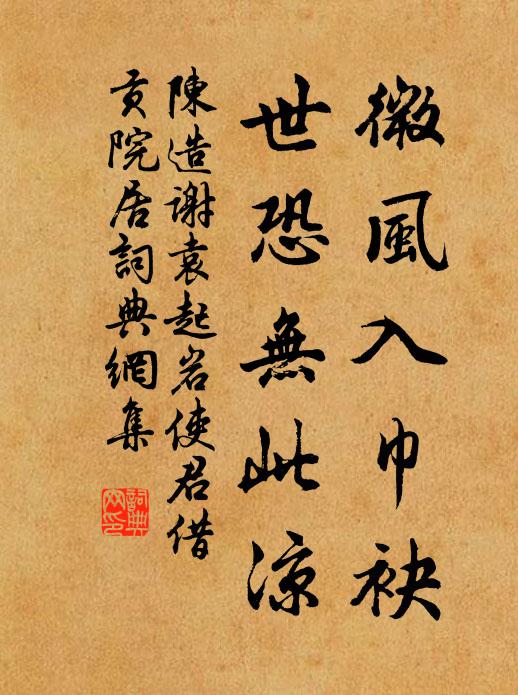 微風入巾袂
世恐無此涼
陳造謝袁起岩使君借
貢院居詞典網集
詞典网印